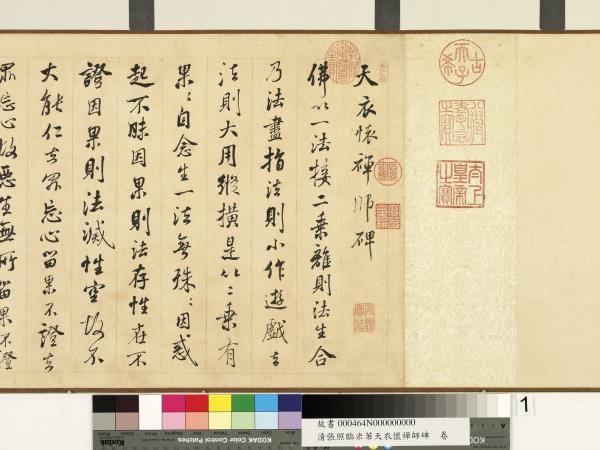 天衣懷禪師碑
佛以一法接二乘離則法生合
乃法盡指法則小作遊戲去
法則大用縱橫是以二乘有
果果自念生一法無殊殊因惑
起不昧因果則法存性在不
證因果則法滅性空故不
大能仁去眾忘心留果不證去
眾忘心故惡生無所留果不證
古希天子
八徵耄念之寶
太上皇帝之寶
KODAK Color Control Patches
Kodak
1
故書 000464N000000000
清張照臨米芾天衣懷禪師碑 卷